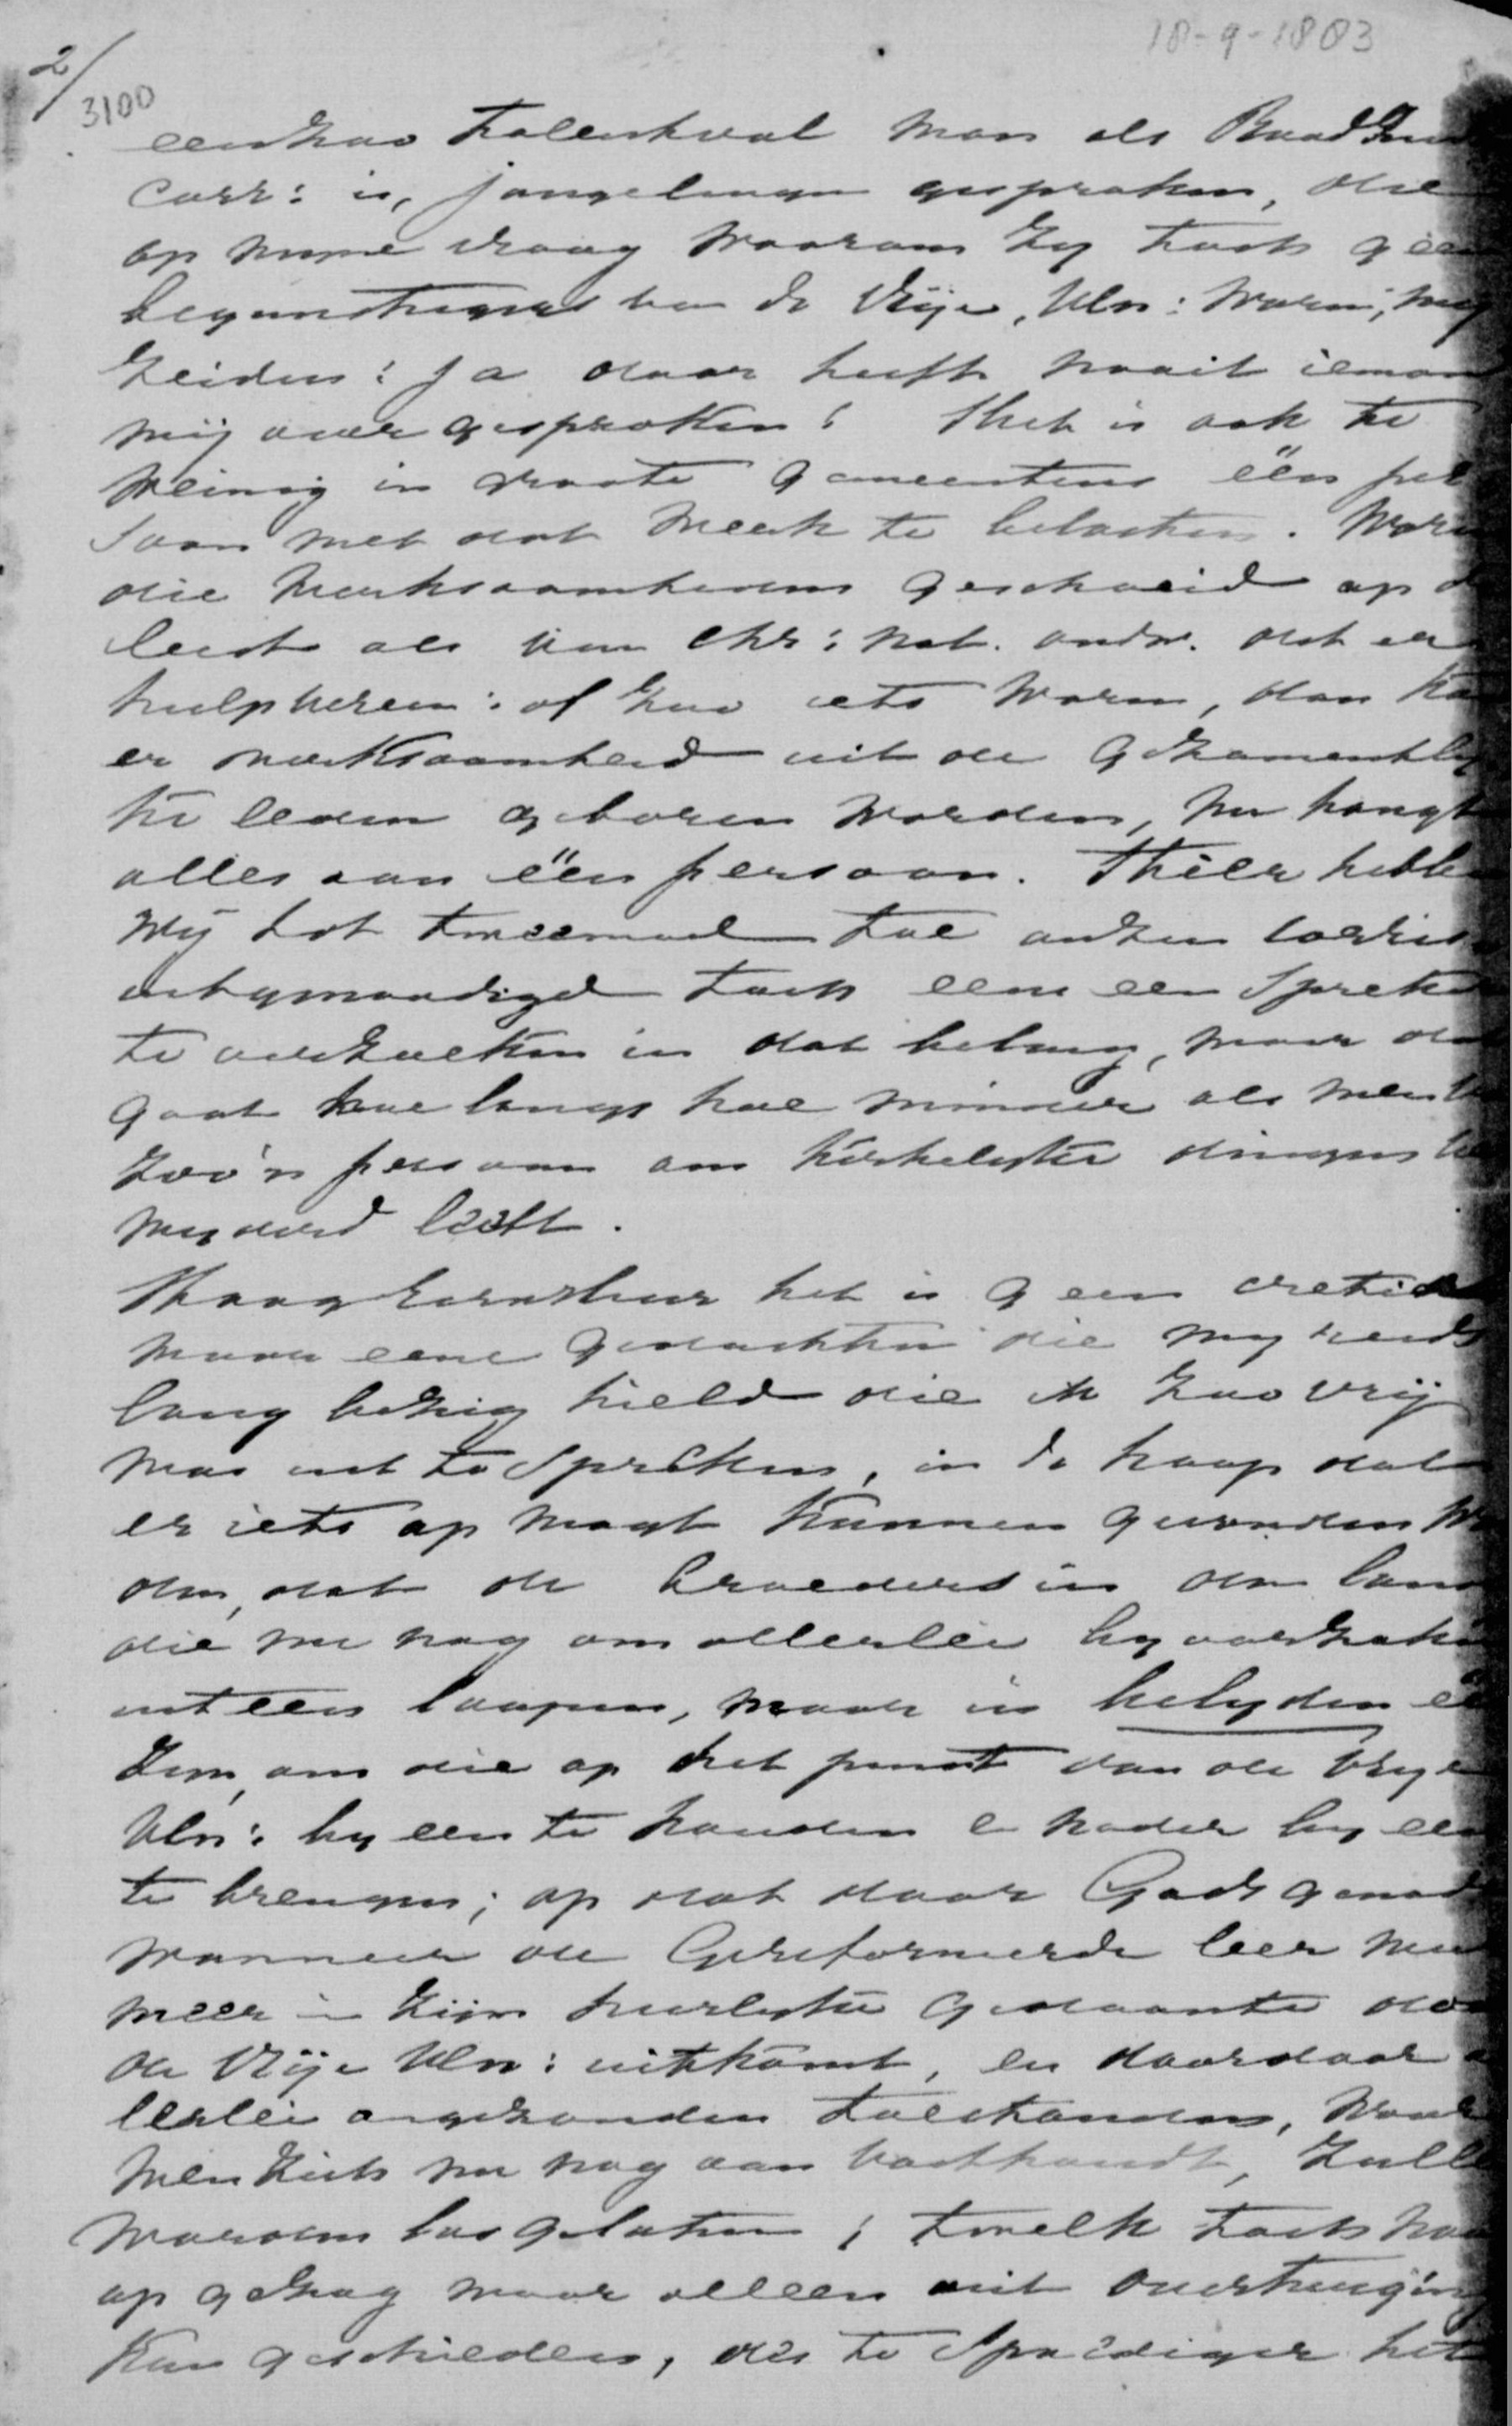 18-9-1883
2/
3100
een zoo talentvol man als
Corr: is, jongelingen gesproken, die
op mijne vraag waarom zij toch geen
begunstigers van de Vrije Un: waren, mij
zeiden: ja daar heeft nooit iemand
mij over gesproken! Het is ook te
weinig in groote gemeentens één per
soon met dat werk te belasten. Waren
die werksaamheden geschoeid op de
leest als van Chr: nat. ondw. dat er
hulpvereen: of zoo iets waren, dan kan
er werksaamheid uit de gezamentlij
ke leden geboren worden, nu hangt
alles aan één persoon. Hier hebben
wij tot tweemaal toe onzen
uitgenoodigd toch eens een Spreker
te verzoeken in dat belang, maar dat
gaat hoe langs hoe minder als men
zoo'n persoon om kerkelijke dingen
leest.
Hooggeeerde heer het is geen
maar eene gedachten die mij reeds
lang bezig hield die ik zoo vrij
was uit te Spreken, in de hoop dat
er iets op mogt kunnen gevonden wor
den, dat de broeders in den lande
die nu nog om allerlei bijoorzaken
uit een loopen, maar in belijden één
zijn, om die op het punt van de Vrije
Un: bij een te houden & nader bij een
te brengen; op dat door Gods genade
wanneer de Gereformeerde leer meer
meer in zijn heerlijke gedaante door
de Vrije Un: uitkomt, en daardoor al
lerlei ongezonden toestanden, waar
men zich nu nog aan vasthoudt, zullen
worden los gelaten; twelk toch nooit
op gezag maar alleen uit overtuiging
kan geschieden, des te Spoediger het